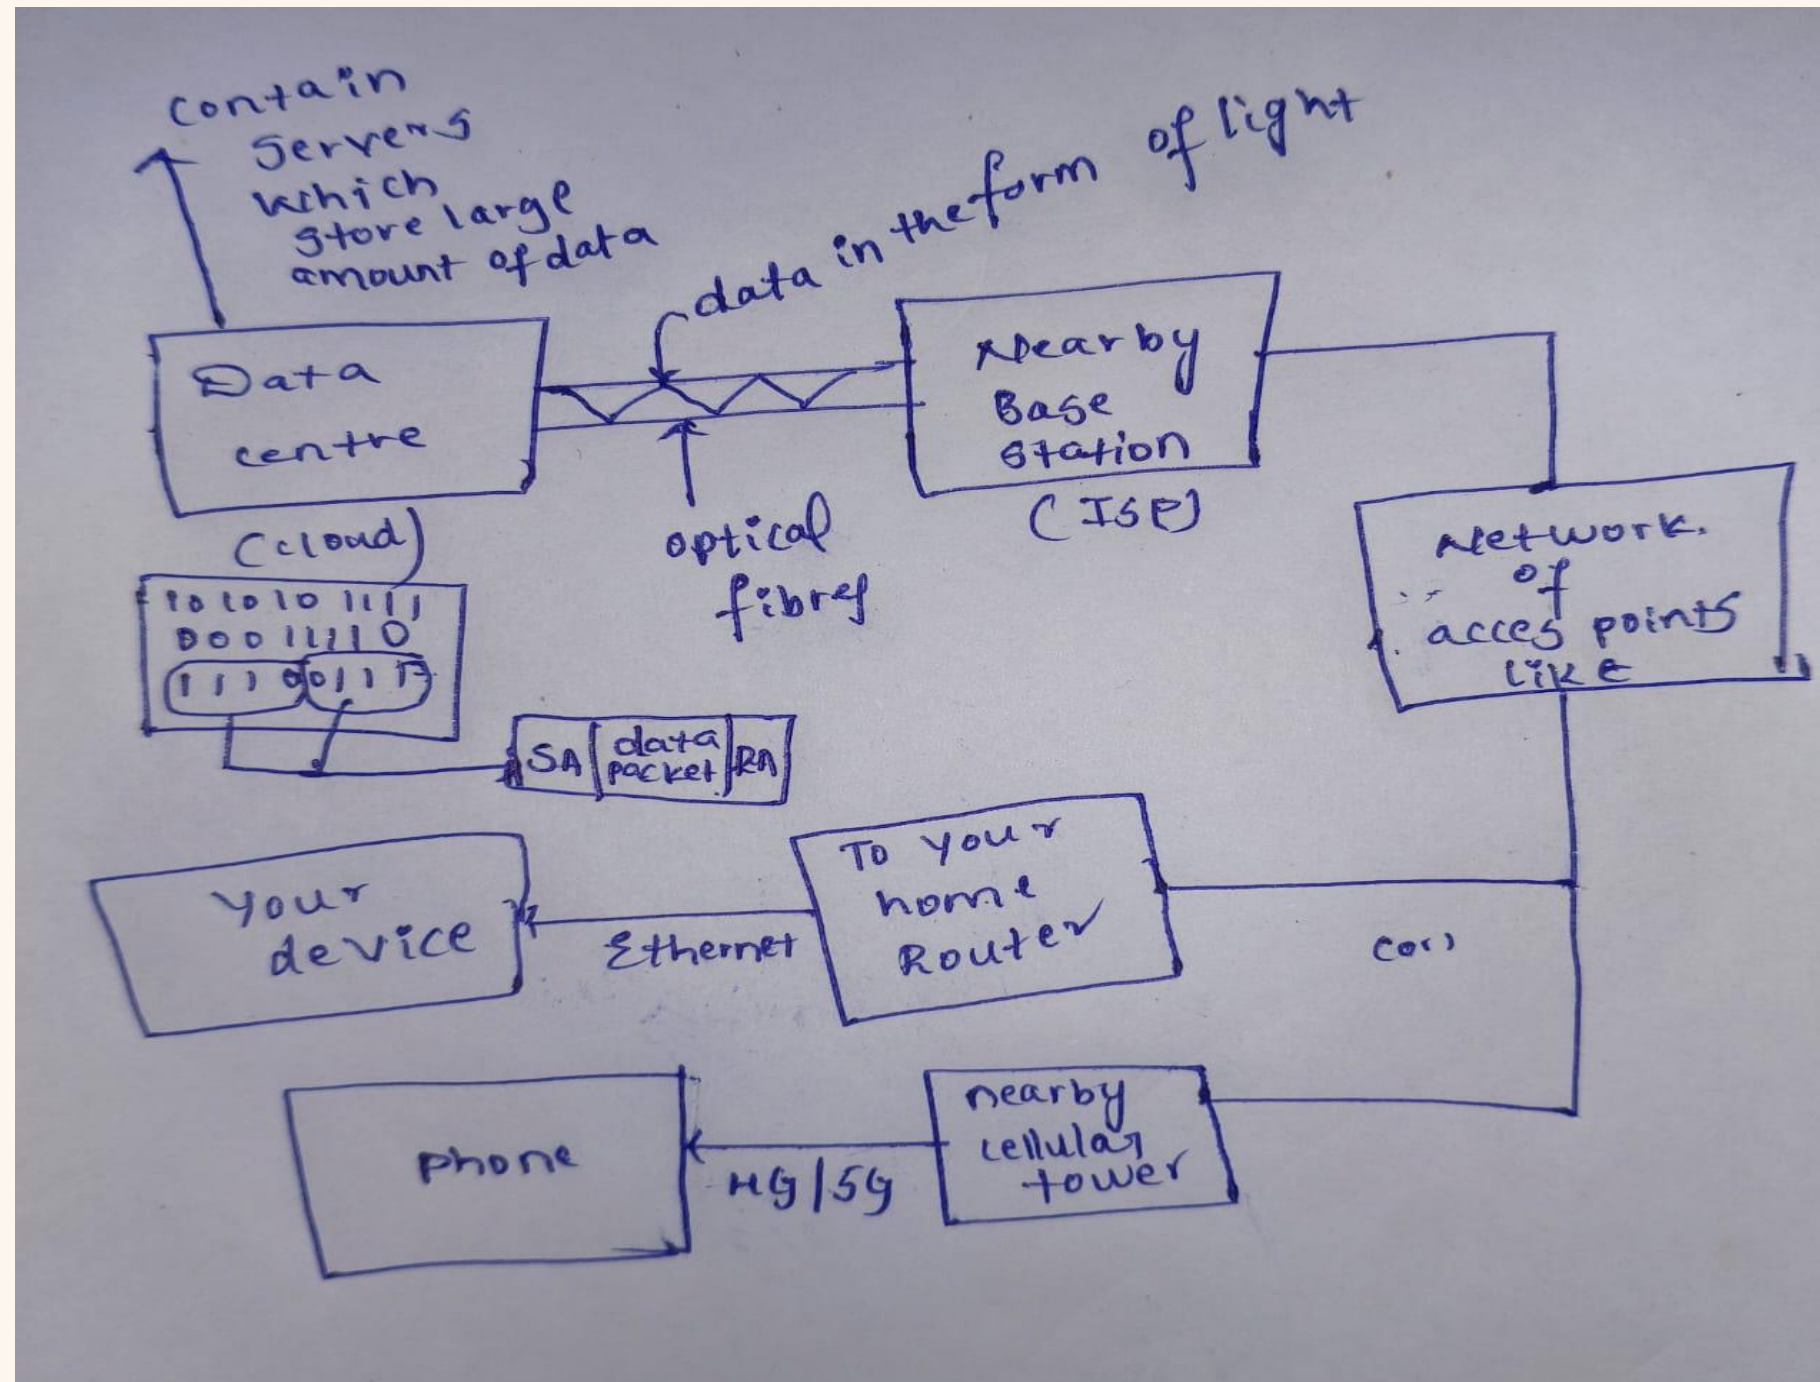 contain
servers
which
store large
amount of data
data in the form of light
Data
centre
(cloud)
Nearby
Base
station
(ISP)
optical
fibres
Network.
of
acces points
like
101010 1111
00011110
1110 0111
SA
data
packet
RA
To your
home
Router
Your
device
Ethernet
(or)
nearby
cellular
tower
phone
4G/5G